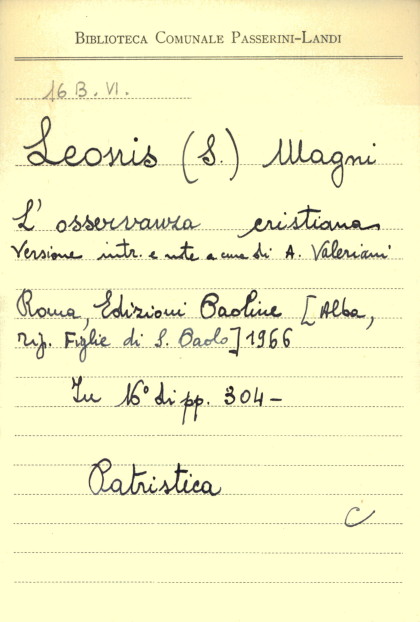 BIBLIOTECA COMUNALE PASSERINI-LANDI
16 B. VI.
Leonis (S.) Magni
L' osservanza cristiana
Versione intr. e note a cura di A. Valeriani
Roma, Edizioni Paoline [Alba,
tip. Figlie di S. Paolo] 1966
In 16° di pp. 304-
Patristica
C